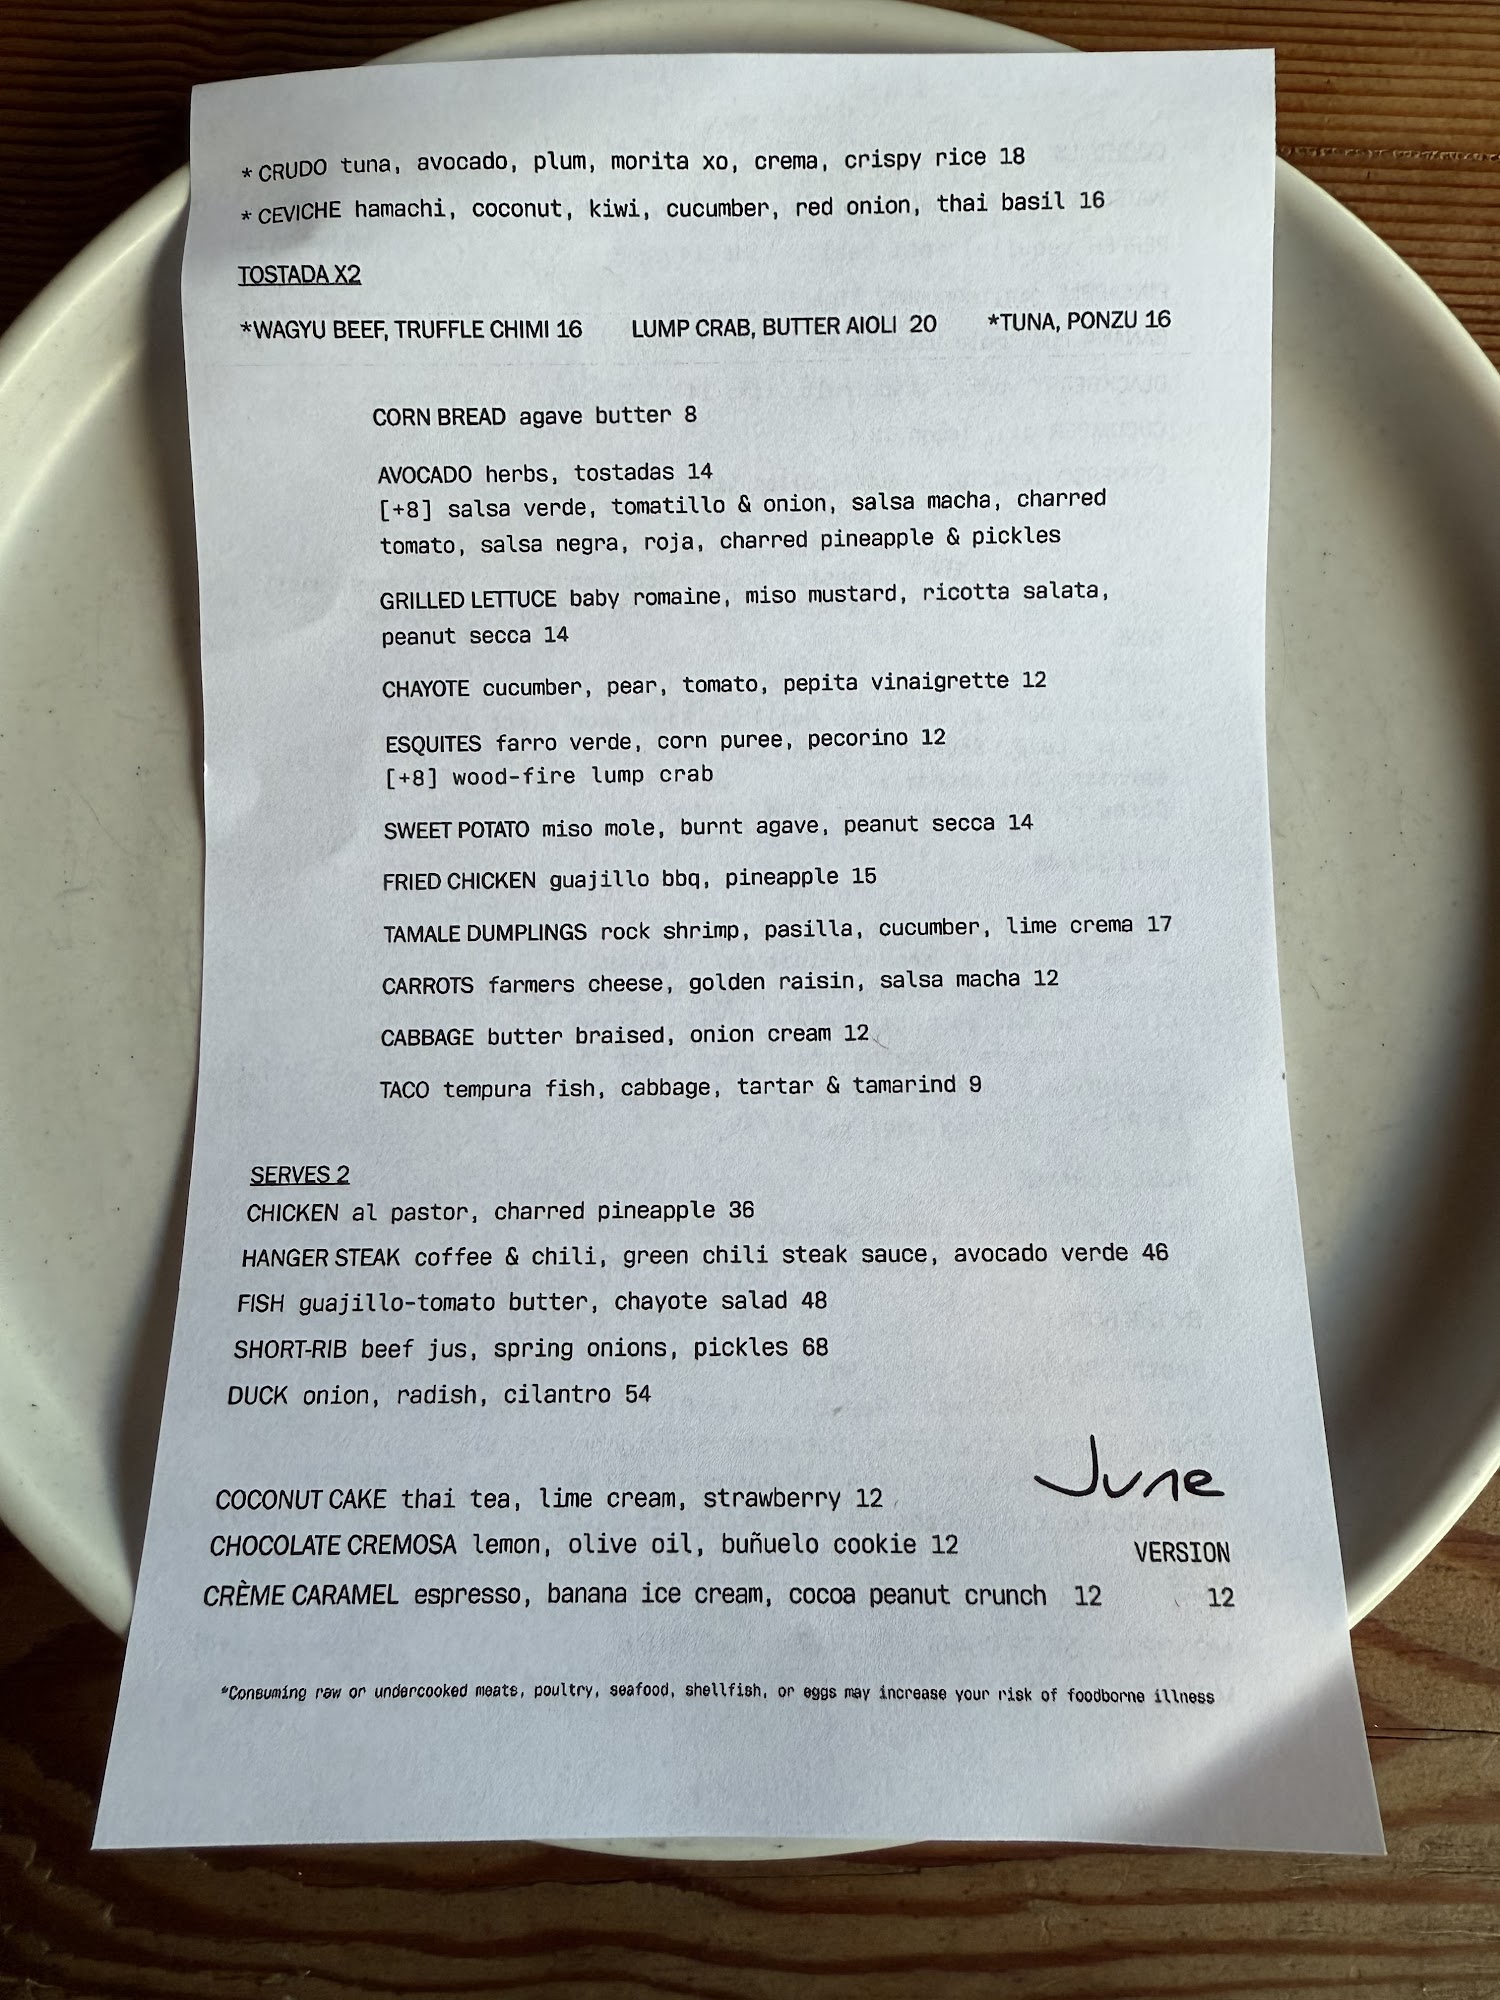 * CRUDO tuna, avocado, plum, morita xo, crema, crispy rice 18
* CEVICHE hamachi, coconut, kiwi, cucumber, red onion, thai basil 16
TOSTADA X2
*WAGYU BEEF, TRUFFLE CHIMI 16 LUMP CRAB, BUTTER AIOLI 20 *TUNA, PONZU 16
CORN BREAD agave butter 8
AVOCADO herbs, tostadas 14
[+8] salsa verde, tomatillo & onion, salsa macha, charred
tomato, salsa negra, roja, charred pineapple & pickles
GRILLED LETTUCE baby romaine, miso mustard, ricotta salata,
peanut secca 14
CHAYOTE cucumber, pear, tomato, pepita vinaigrette 12
ESQUITES farro verde, corn puree, pecorino 12
[+8] wood-fire lump crab
SWEET POTATO miso mole, burnt agave, peanut secca 14
FRIED CHICKEN guajillo bbq, pineapple 15
TAMALE DUMPLINGS rock shrimp, pasilla, cucumber, lime crema 17
CARROTS farmers cheese, golden raisin, salsa macha 12
CABBAGE butter braised, onion cream 12
TACO tempura fish, cabbage, tartar & tamarind 9
SERVES 2
CHICKEN al pastor, charred pineapple 36
HANGER STEAK coffee & chili, green chili steak sauce, avocado verde 46
FISH guajillo-tomato butter, chayote salad 48
SHORT-RIB beef jus, spring onions, pickles 68
DUCK onion, radish, cilantro 54
June
COCONUT CAKE thai tea, lime cream, strawberry 12
CHOCOLATE CREMOSA lemon, olive oil, buñuelo cookie 12
VERSION
CRÈME CARAMEL espresso, banana ice cream, cocoa peanut crunch 12
12
*Consuming raw or undercooked meats, poultry, seafood, shellfish, or eggs may increase your risk of foodborne illness